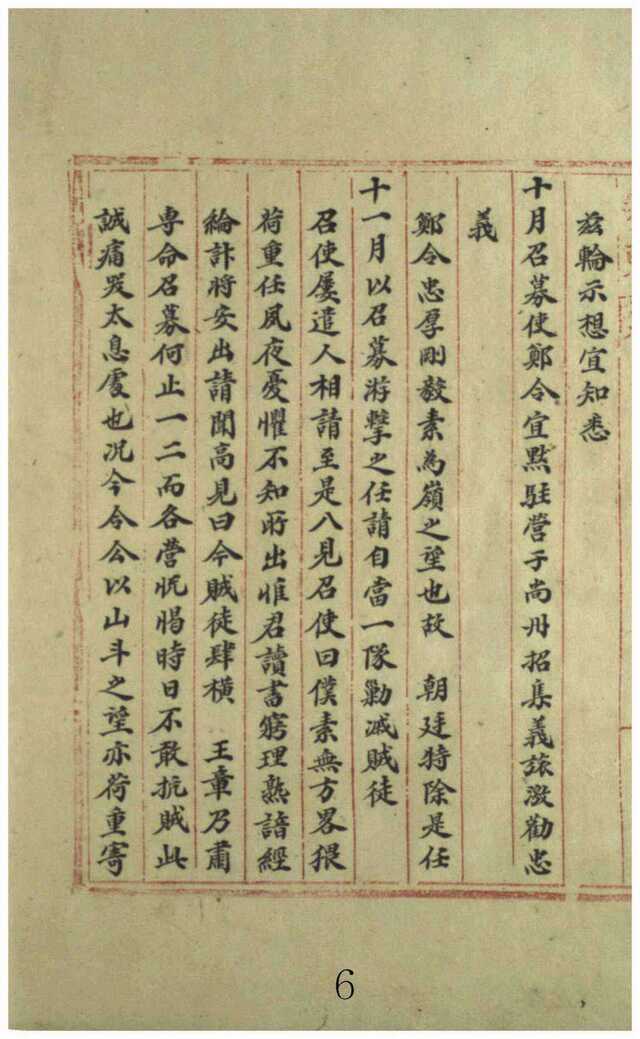 玆輪示想宜知悉
十月召募使鄭令宜黙駐營于尚州招集義旅激勸忠
義
鄭令忠厚剛毅素為嶺之望也故 朝廷特除是任
十一月以召募游擊之任請自當一隊勦滅賊徒
召使屡遣人相請至是入見召使曰僕素無方畧猥
荷重任夙夜憂懼不知所出惟君讀書窮理熟諳經
綸計將安出請聞高見曰今賊徒肆橫 王章乃肅
専命召募何止一二而各營恇㥘時日不敢抗賊此
誠痛哭太息處也况今令公以山斗之望亦荷重寄
6